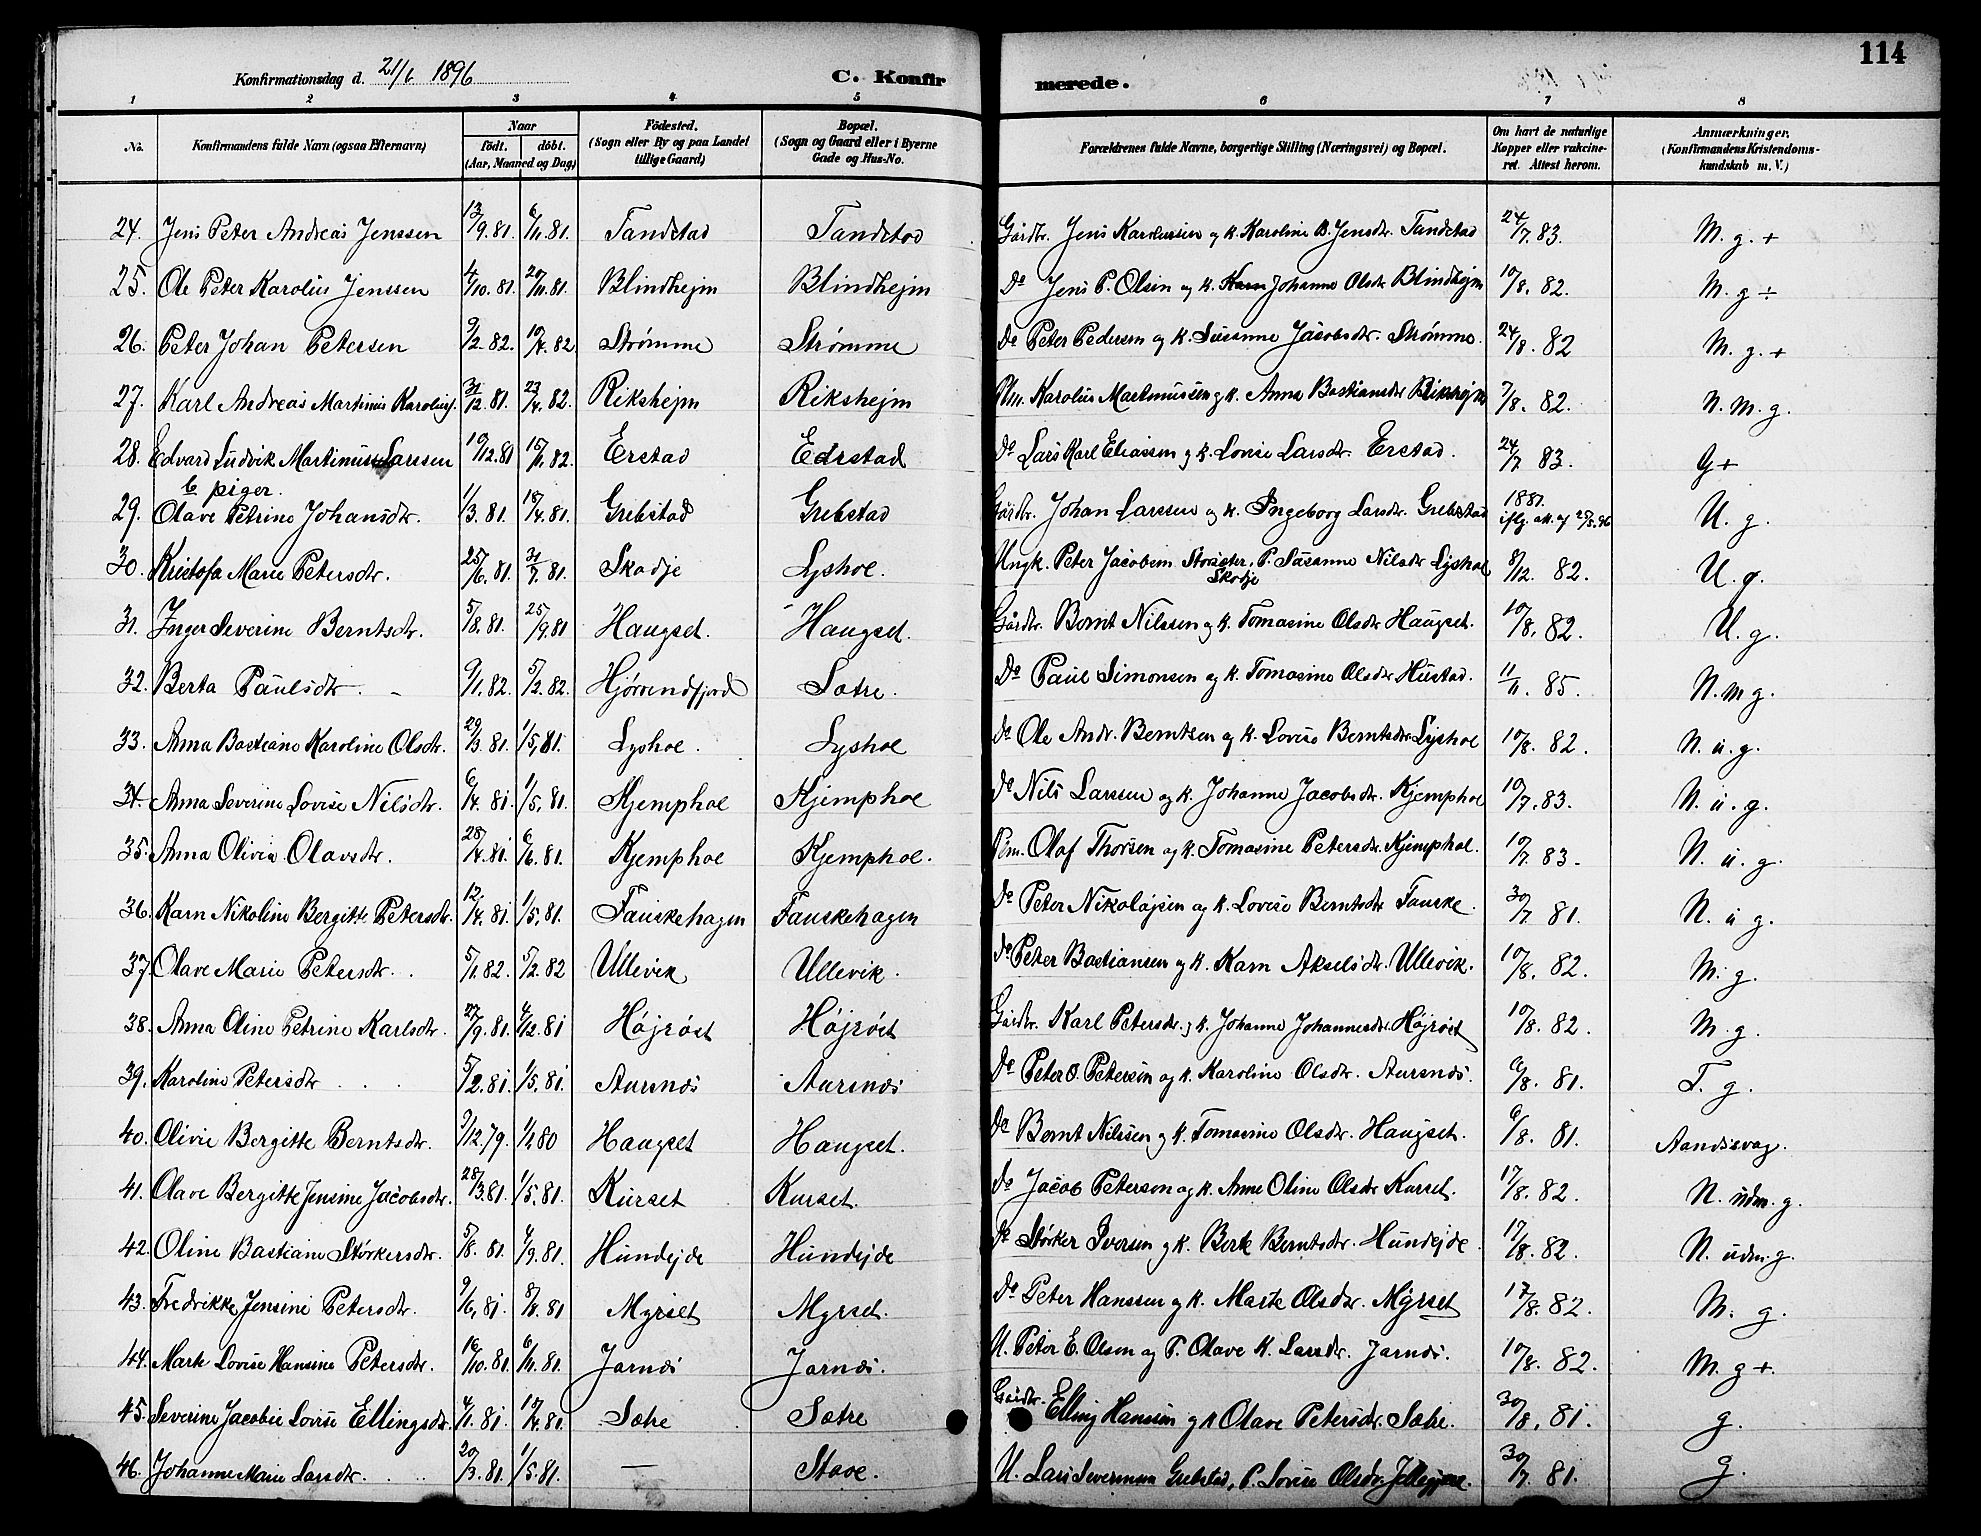 114
Konfirmationsdag d. 21/6 1896 C. Konfir merede.
1 2 3 4 5 6 7 8
No. Konfirmandens fulde Navn (ogsaa Efternavn) Naar født. døbt. (Aar, Maaned og Dag) Fødested. (Sogn eller By og paa Landet tillige Gaard) Bopæl. (Sogn og Gaard eller i Byerne Gade og Hus-No. Forældrenes fulde Navne, borgerlige Stilling (Næringsvei) og Bopæl. Om havt de naturlige Kopper eller vakcineret. Attest herom. Anmærkninger. (Konfirmandens Kristendomskundskab m. V.)
24. Jens Peter Andreas Jenssen 13/9.81. 6/11.81. Tandstad Tandstad Gårdbr. Jens Karolussen og K. Karoline B. Jensdtr. Tandstad 24/7.83. M. g. +
25. Ole Peter Karolus Jenssen 4/10.81. 20/11.81. Blindhejm Blindhejm Do Jens P. Olsen og K. Johanne Olsdr Blindhejm 10/8.82. M. g ÷
26. Peter Johan Petersen 9/2.82. 10/4.82 Strømme Strømme Do Peter Pedersen og K. Susanne Jacobsdtr. Strømme. 24/8.82 M. g. +
27. Karl Andreas Martinus Karolusj. 31/12.81. 23/4.82. Rikshejm Rikshejm Karolus Martinussen og K. Anna Bastiansdtr Rikshejm 7/8.82. N. m. g.
28. Edvard Ludvik Martinus Larssen 10/12.81 15/1.82. Erstad Edrstad Do Lars Karl Eliassen og K. Lovise Larsdtr. Erstad. 24/7 83. G +
b piger.
29. Olave Petrine Johansdtr. 1/3.81. 18/4.81. Grebstad Grebstad Gårdbr. Johan Larssen og K. Ingeborg Larsdtr. Grebstad 1881. iflg. att. af 25/5.96 U. g.
30. Kristofa Marie Petersdtr. 25/6.81. 31/7.81. Skodje Lyshoe. Ungk. Peter Jacobsen Skodje P. Susanne Nilsdtr Lyshoe 8/12.82. U. g.
31. Inger Severine Berntsdtr. 5/8.81. 25/9.81 Haugset. Haugset. Gårdbr. Bernt Nilssen og K. Tomasine Olsdtr Haugset. 10/8.82. U. g.
32. Berta Paulsdtr. 9/1.82. 5/2.82. Hjørrendfjord Satre. Do Paul Simonsen og K. Tomasine Olsdtr Hustad. 11/11.85. N. m g.
33. Anna Bastiane Karoline Olsdtr. 29/3.81. 1/5.81. Lyshoe. Lyshoe Do Ole Andr. Berntsen og K. Lovise Berntsdtr Lyshoe 10/8.82. N. u. g.
34. Anna Severine Lovise Nilsdtr. 6/4.81. 1/5.81. Kjemphoe Kjemphoe Do Nils Larssen og K. Johanne Jacobsdtr. Kjemphoe 10/7.83. N. u. g.
35. Anna Olivia Olavsdtr. 28/4.81. 6/6.81. Kjemphoe Kjemphoe. Pm. Olaf Thorsen og K. Tomasine Petersdtr. Kjemphoe. 10/7.83. N. u. g.
36. Karn Nikoline Bergitte Petersdtr. 12/4.81. 1/5.81. Fauskehagen Fauskehagen Do Peter Nikolajsen og K. Lovise Berntsdtr Fauske. 30/7 81. N. u g.
37. Olave Marie Petersdtr. 5/1.82. 5/2.82 Ullevik Ullevik. Do Peter Bastiansen og K. Karn Akselsdtr. Ullevik. 10/8.82. M. g.
38. Anna Oline Petrine Karlsdtr. 27/9.81. 4/12.81 Højrøst Højrøst Gårdbr. Karl Petersdtr. og K. Johanne Johannesdtr. Højrøst 10/8.82. M. g.
39. Karoline Petersdtr 5/2.81. 1/5.81. Aursnes Aursnes Do Peter O. Petersen og K. Karoline Olsdtr. Aursnes. 6/8.81. T. g.
40. Olivie Bergitte Berntsdtr. 3/12.79. 1/1.80 Haugset Haugset. Do Bernt Nilssen og K. Tomasine Olsdtr. Haugset. 6/8.81. Aandsvag.
41. Olave Bergitte Jensine Jacobsdtr. 28/3.81. 1/5.81. Kurset Kurset. Do Jacob Petersen og K. Anne Oline Olsdtr Kurset. 17/8.82. N. udm. g.
42. Oline Bastiane Størkersdtr. 5/8.81. 4/9.81. Hundejde Hundejde Do Størker Iversen og K. Berte Berntsdtr. Hundejde 17/8.82. N. udm. g.
43. Fredrikke Jensine Petersdtr. 9/6.81. 8/8.81 Myrset Myrset. Do Peter Hanssen og K. Marte Olsdtr. Myrset 17/8.82. M. g.
44. Marte Lovise Hansine Petersdtr. 16/10.81. 6/11.81. Jarnes Jarnes. U. Peter E. Olsen og P. Olave K. Larsdtr. Jarnes. 10/8.82. M. g +.
45. Severine Jacobie Lovise Ellingsdtr. 4/1.81. 10/4.81. Satre Satre Gårdbr. Elling Hanssen og K Olave Petersdtr. Satre. 30/8.81. g.
46. Johanne Marie Larsdtr. 20/3.81. 1/5.81. — Stove. U. Lars Severinsen Grebstad, P. Lovise Olsdtr. 30/7 81. g.